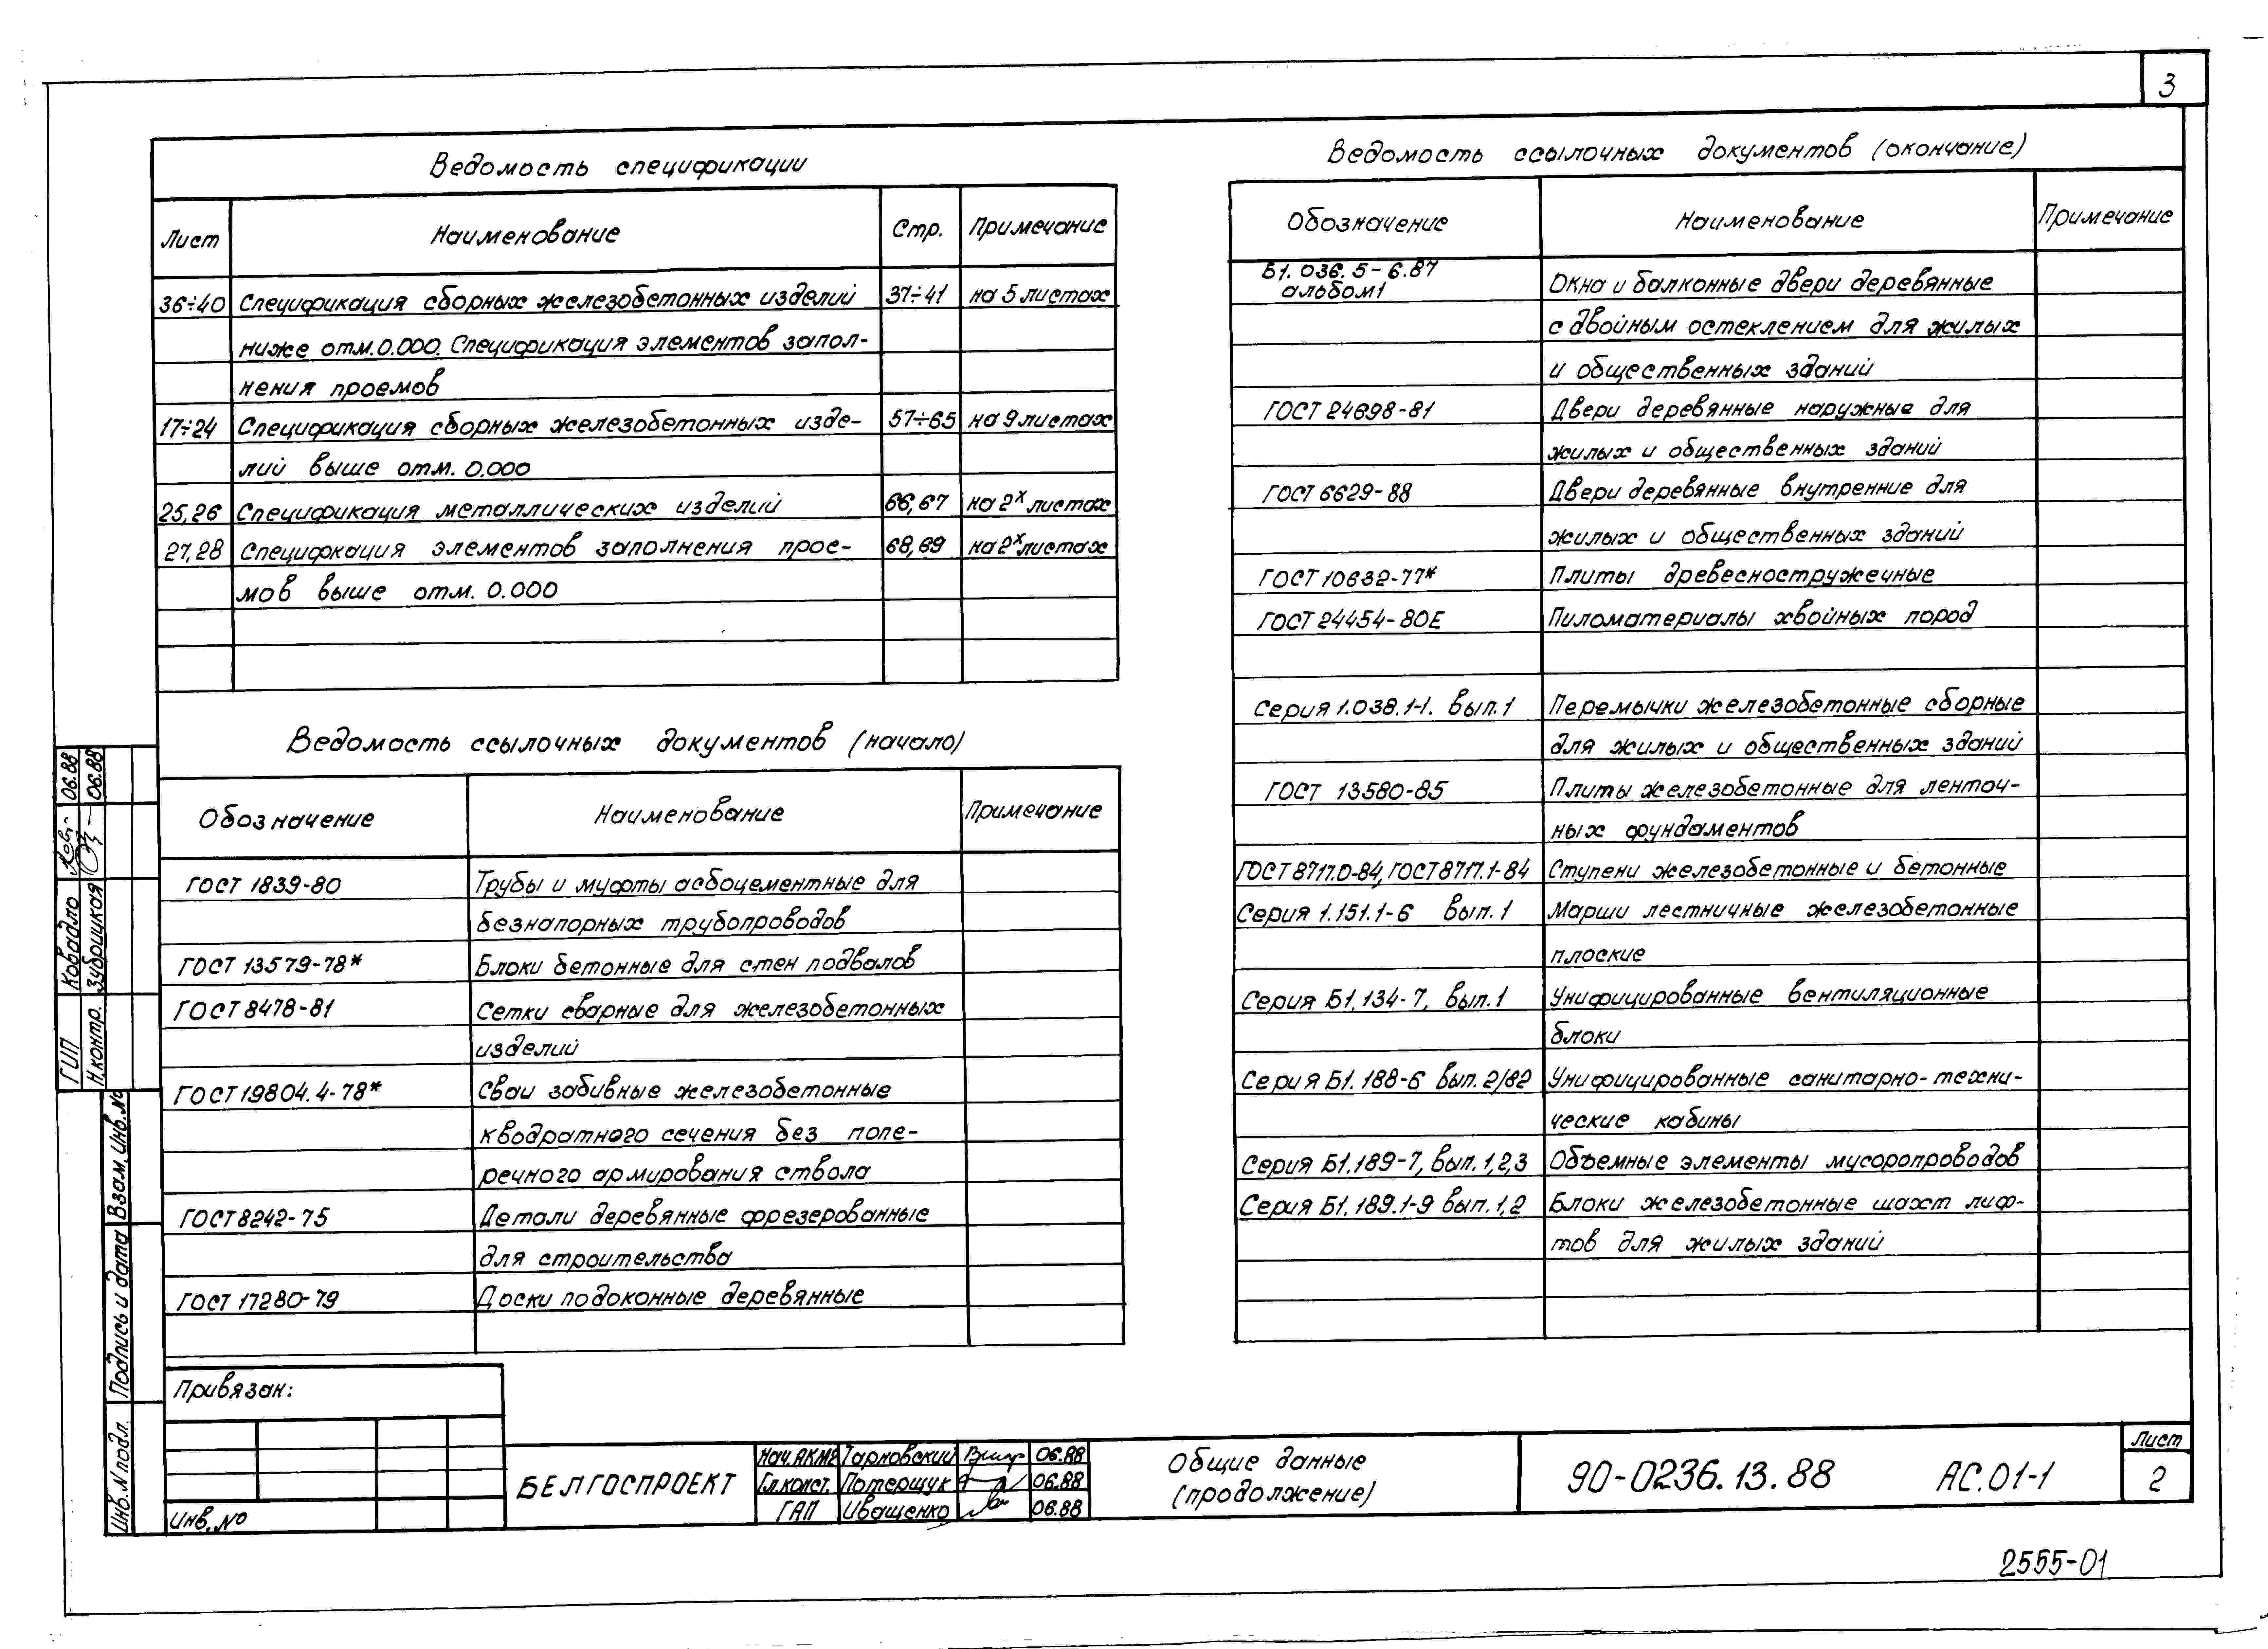 3
Ведомость спецификации
Лист Наименование Стр. Примечание
36÷40 Спецификация сборных железобетонных изделий 37÷41 на 5 листах
ниже отм.0.000. Спецификация элементов запол-
нения проемов
17÷24 Спецификация сборных железобетонных изде- 57÷65 на 9 листах
лий выше отм. 0.000
25,26 Спецификация металлических изделий 66,67 на 2х листах
27,28 Специфкация элементов заполнения прое- 68,69 на 2х листах
мов выше отм. 0.000
Ведомость ссылочных документов (начало)
Обозначение Наименование Примечание
ГОСТ 1839-80 Трубы и муфты асбоцементные для
безнапорных трубопроводов
ГОСТ 13579-78* Блоки бетонные для стен подвалов
ГОСТ 8478-81 Сетки сварные для железобетонных
изделий
ГОСТ 19804.4-78* Сваи забивные железобетонные
квадратного сечения без попе-
речного армирования ствола
ГОСТ 8242-75 Детали деревянные фрезерованные
для строительства
ГОСТ 17280-79 Доски подоконные деревянные
Ведомость ссылочных документов (окончание)
Обозначение Наименование Примечание
Б1.036.5-6.87
альбом1 Окна и балконные двери деревянные
с двойным остеклением для жилых
и общественных зданий
ГОСТ 24698-81 Двери деревянные наружные для
жилых и общественных зданий
ГОСТ 6629-88 Двери деревянные внутренние для
жилых и общественных зданий
ГОСТ 10632-77* Плиты древесностружечные
ГОСТ 24454-80Е Пиломатериалы хвойных пород
Серия 1.038.1-1. вып.1 Перемычки железобетонные сборные
для жилых и общественных зданий
ГОСТ 13580-85 Плиты железобетонные для ленточ-
ных фундаментов
ГОСТ 8717.0-84, ГОСТ 8717.1-84 Ступени железобетонные и бетонные
Серия 1.151.1-6 вып.1 Марши лестничные железобетонные
плоские
Серия Б1.134-7, вып.1 Унифицированные вентиляционные
блоки
Серия Б1.188-6 вып.2/82 Унифицированные санитарно-техни-
ческие кабины
Серия Б1.189-7, вып.1,2,3 Объемные элементы мусоропроводов
Серия Б1.189.1-9 вып.1,2 Блоки железобетонные шахт лиф-
тов для жилых зданий
ГИП Ковадло 06.88
Н.контр. Зубрицкая 06.88
Инв.N подл. Подпись и дата Взам.Инв.№
Привязан:
Инв.№
БЕЛГОСПРОЕКТ
Нач.АКМ2 Тарновский 06.88
Гл.конст. Потерщук 06.88
ГАП Иващенко 06.88
Общие данные
(продолжение)
90-0236.13.88 АС.01-1
Лист
2
2555-01